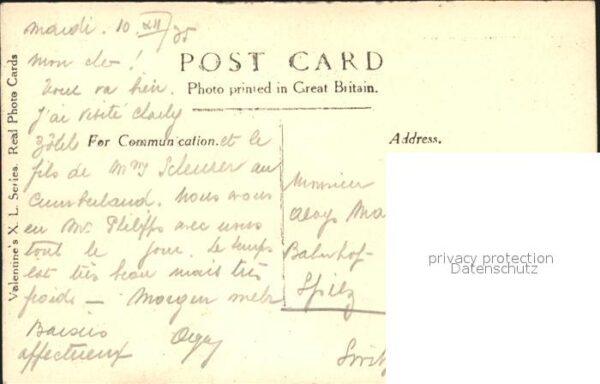 mardi. 10 XII/35
Mon cher!
POST CARD
Tout va bien.
Photo printed in Great Britain.
J'ai visité
For Communication.
et le
fils de Mme Scheurer au
Cumberland. Nous avons
eu Mr. Philipps avec nous
tout le jour. Le temps
est très beau mais très
froide — Morgen mehr
Baisers
affectueux
Address.
Monsieur
Aloys Ma
Bahnhof-
Spiez
Swit
Valentine's X. L. Series. Real Photo Cards
privacy protection
Datenschutz